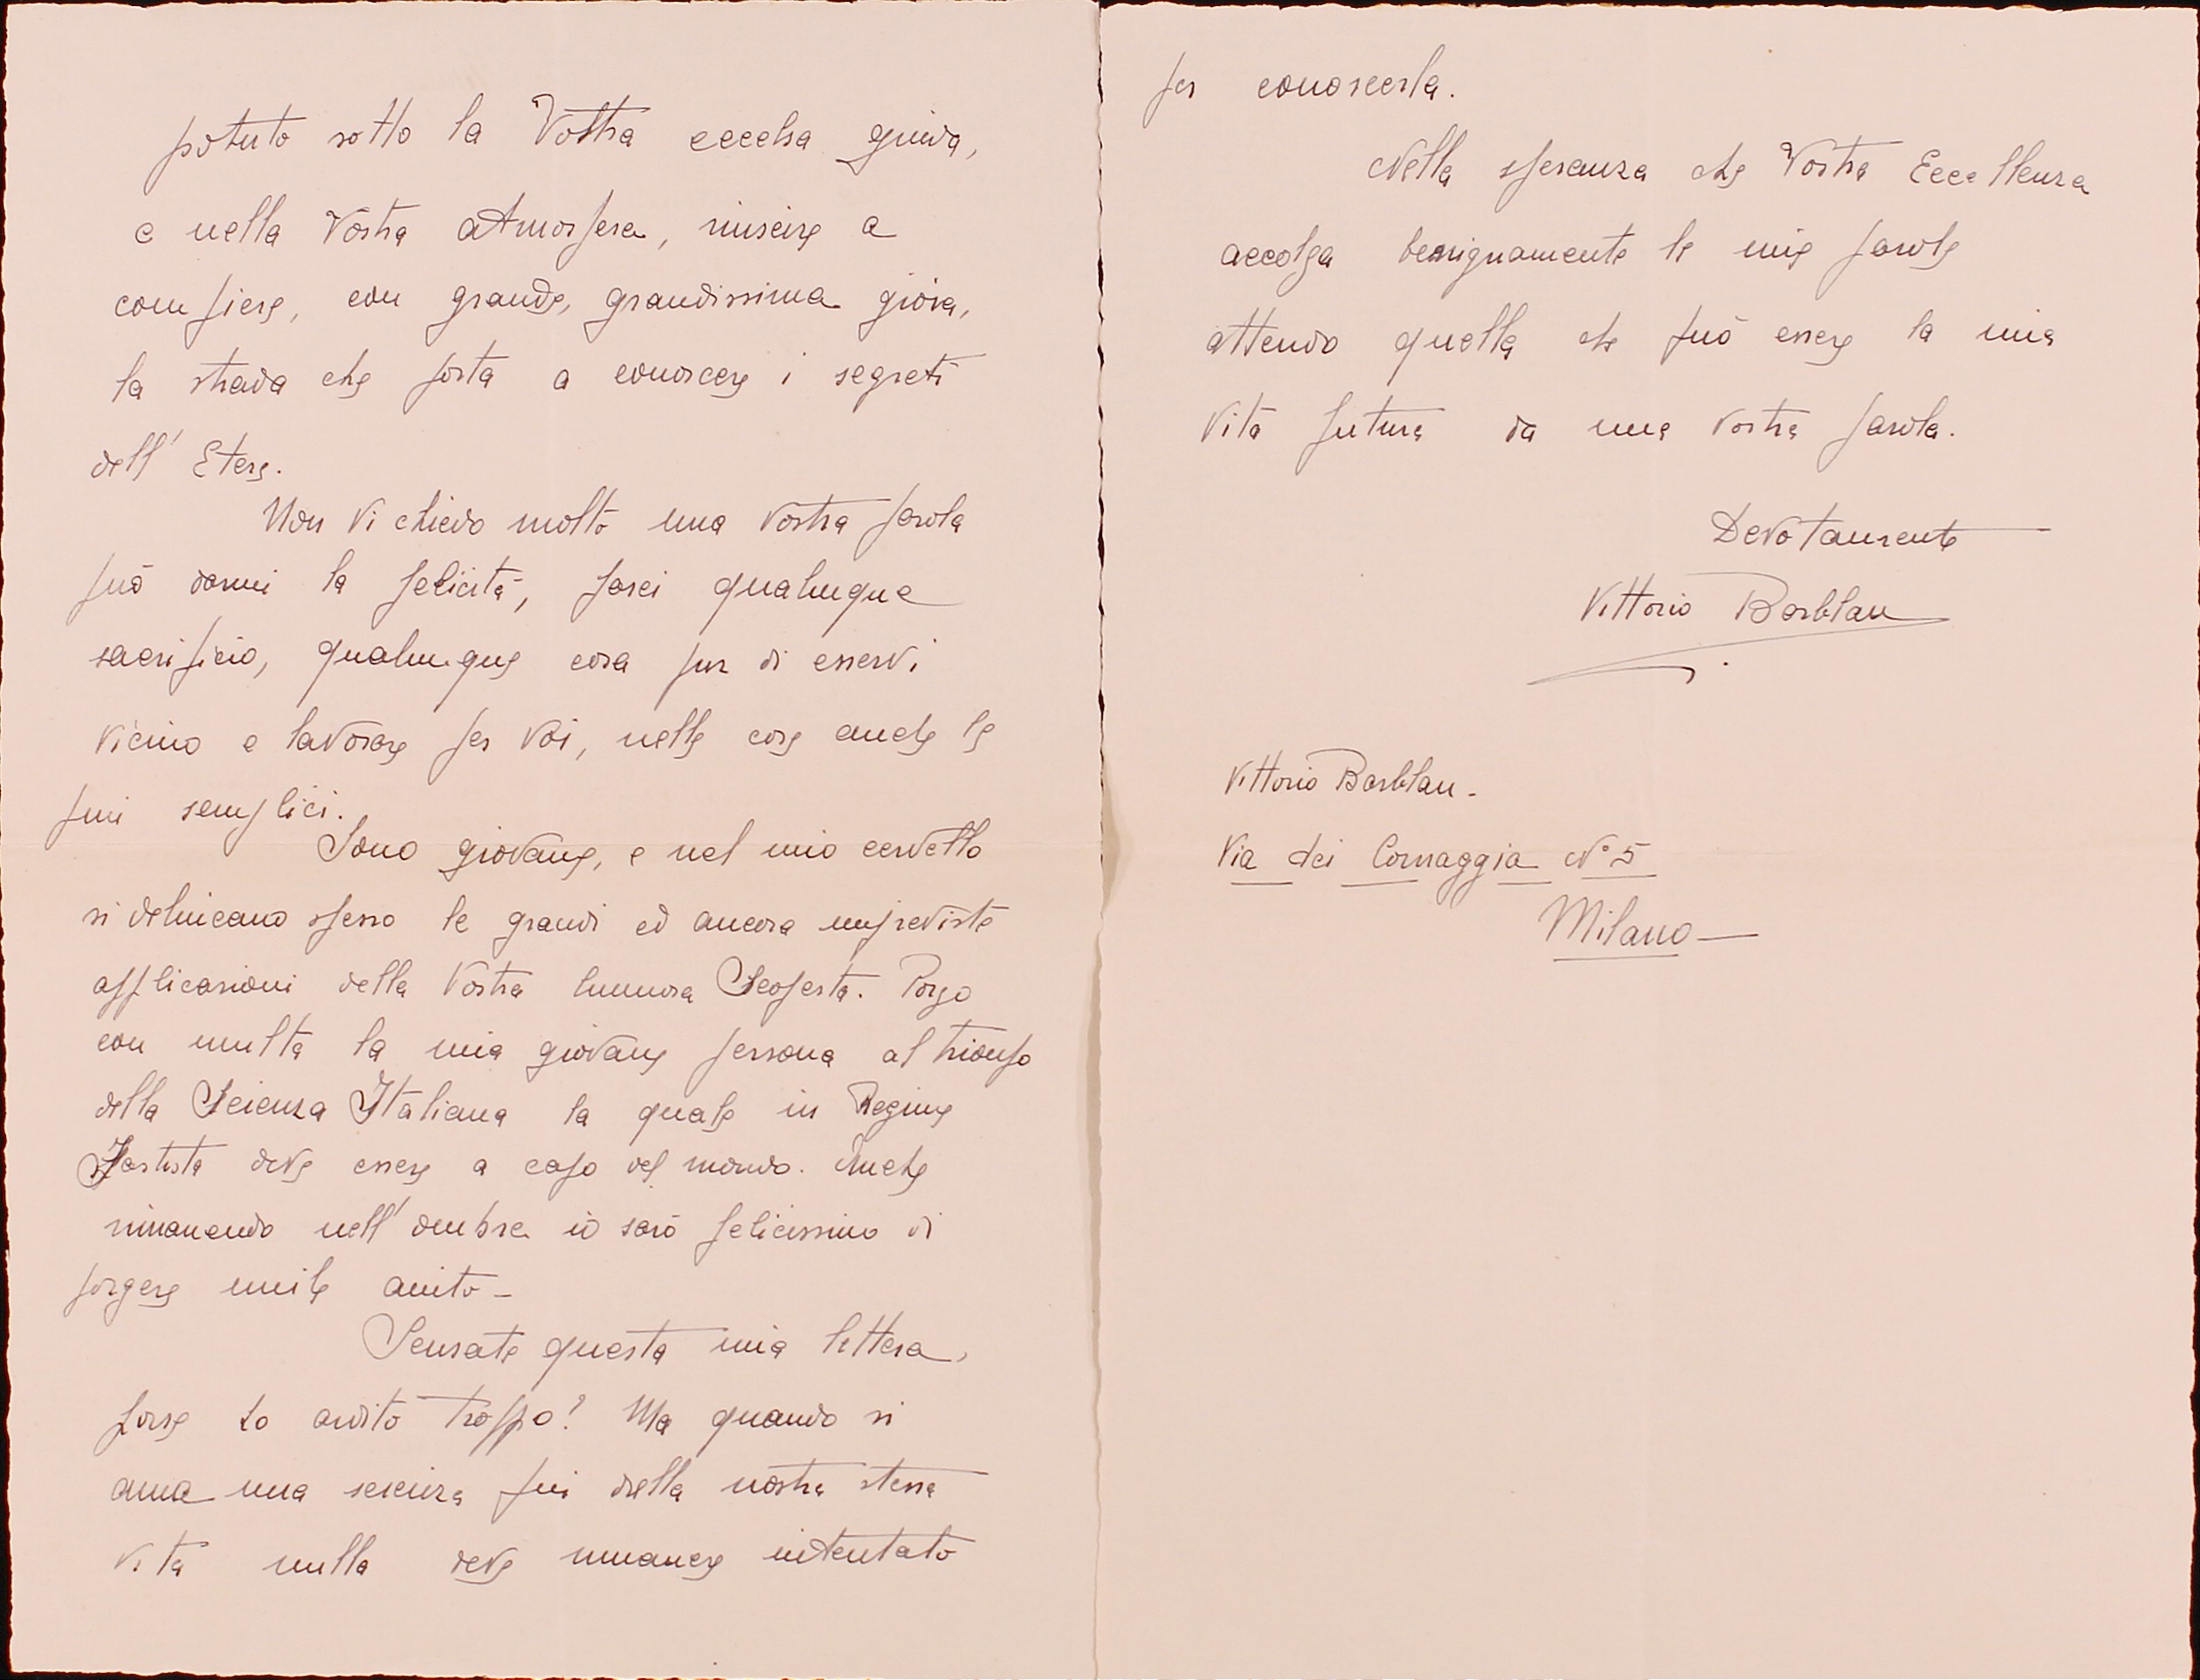 potuto sotto la Vostra eccelsa guida,
e nella Vostra atmosfera, riuscire a
compiere, con grande, grandissima gioia,
la strada che porta a conoscere i segreti
dell' Etere.
Non Vi chiedo molto una Vostra parola
può darmi la felicità, farei qualunque
sacrificio, qualunque cosa pur di esservi
vicino e lavorare per Voi, nelle cose anche le
più semplici.
Sono giovane, e nel mio cervello
si delineano spesso le grandi ed ancora impreviste
applicazioni della Vostra luminosa Scoperta. Porgo
con umiltà la mia giovane persona al trionfo
della Scienza Italiana la quale in Regime
Fascista deve essere a capo del mondo. Anche
rimanendo nell' ombra io sarò felicissimo di
porgere umile aiuto -
Scusate questa mia lettera,
forse ho ardito troppo? Ma quando si
ama una scienza più della nostra stessa
vita nulla deve rimanere intentato
per conoscerla.
Nella speranza che Vostra Eccellenza
accolga benignamente le mie parole
attendo quella che può essere la mia
Vita futura da una Vostra parola.
Devotamente
Vittorio Barblan
Vittorio Barblan -
Via dei Cornaggia N° 5
Milano -